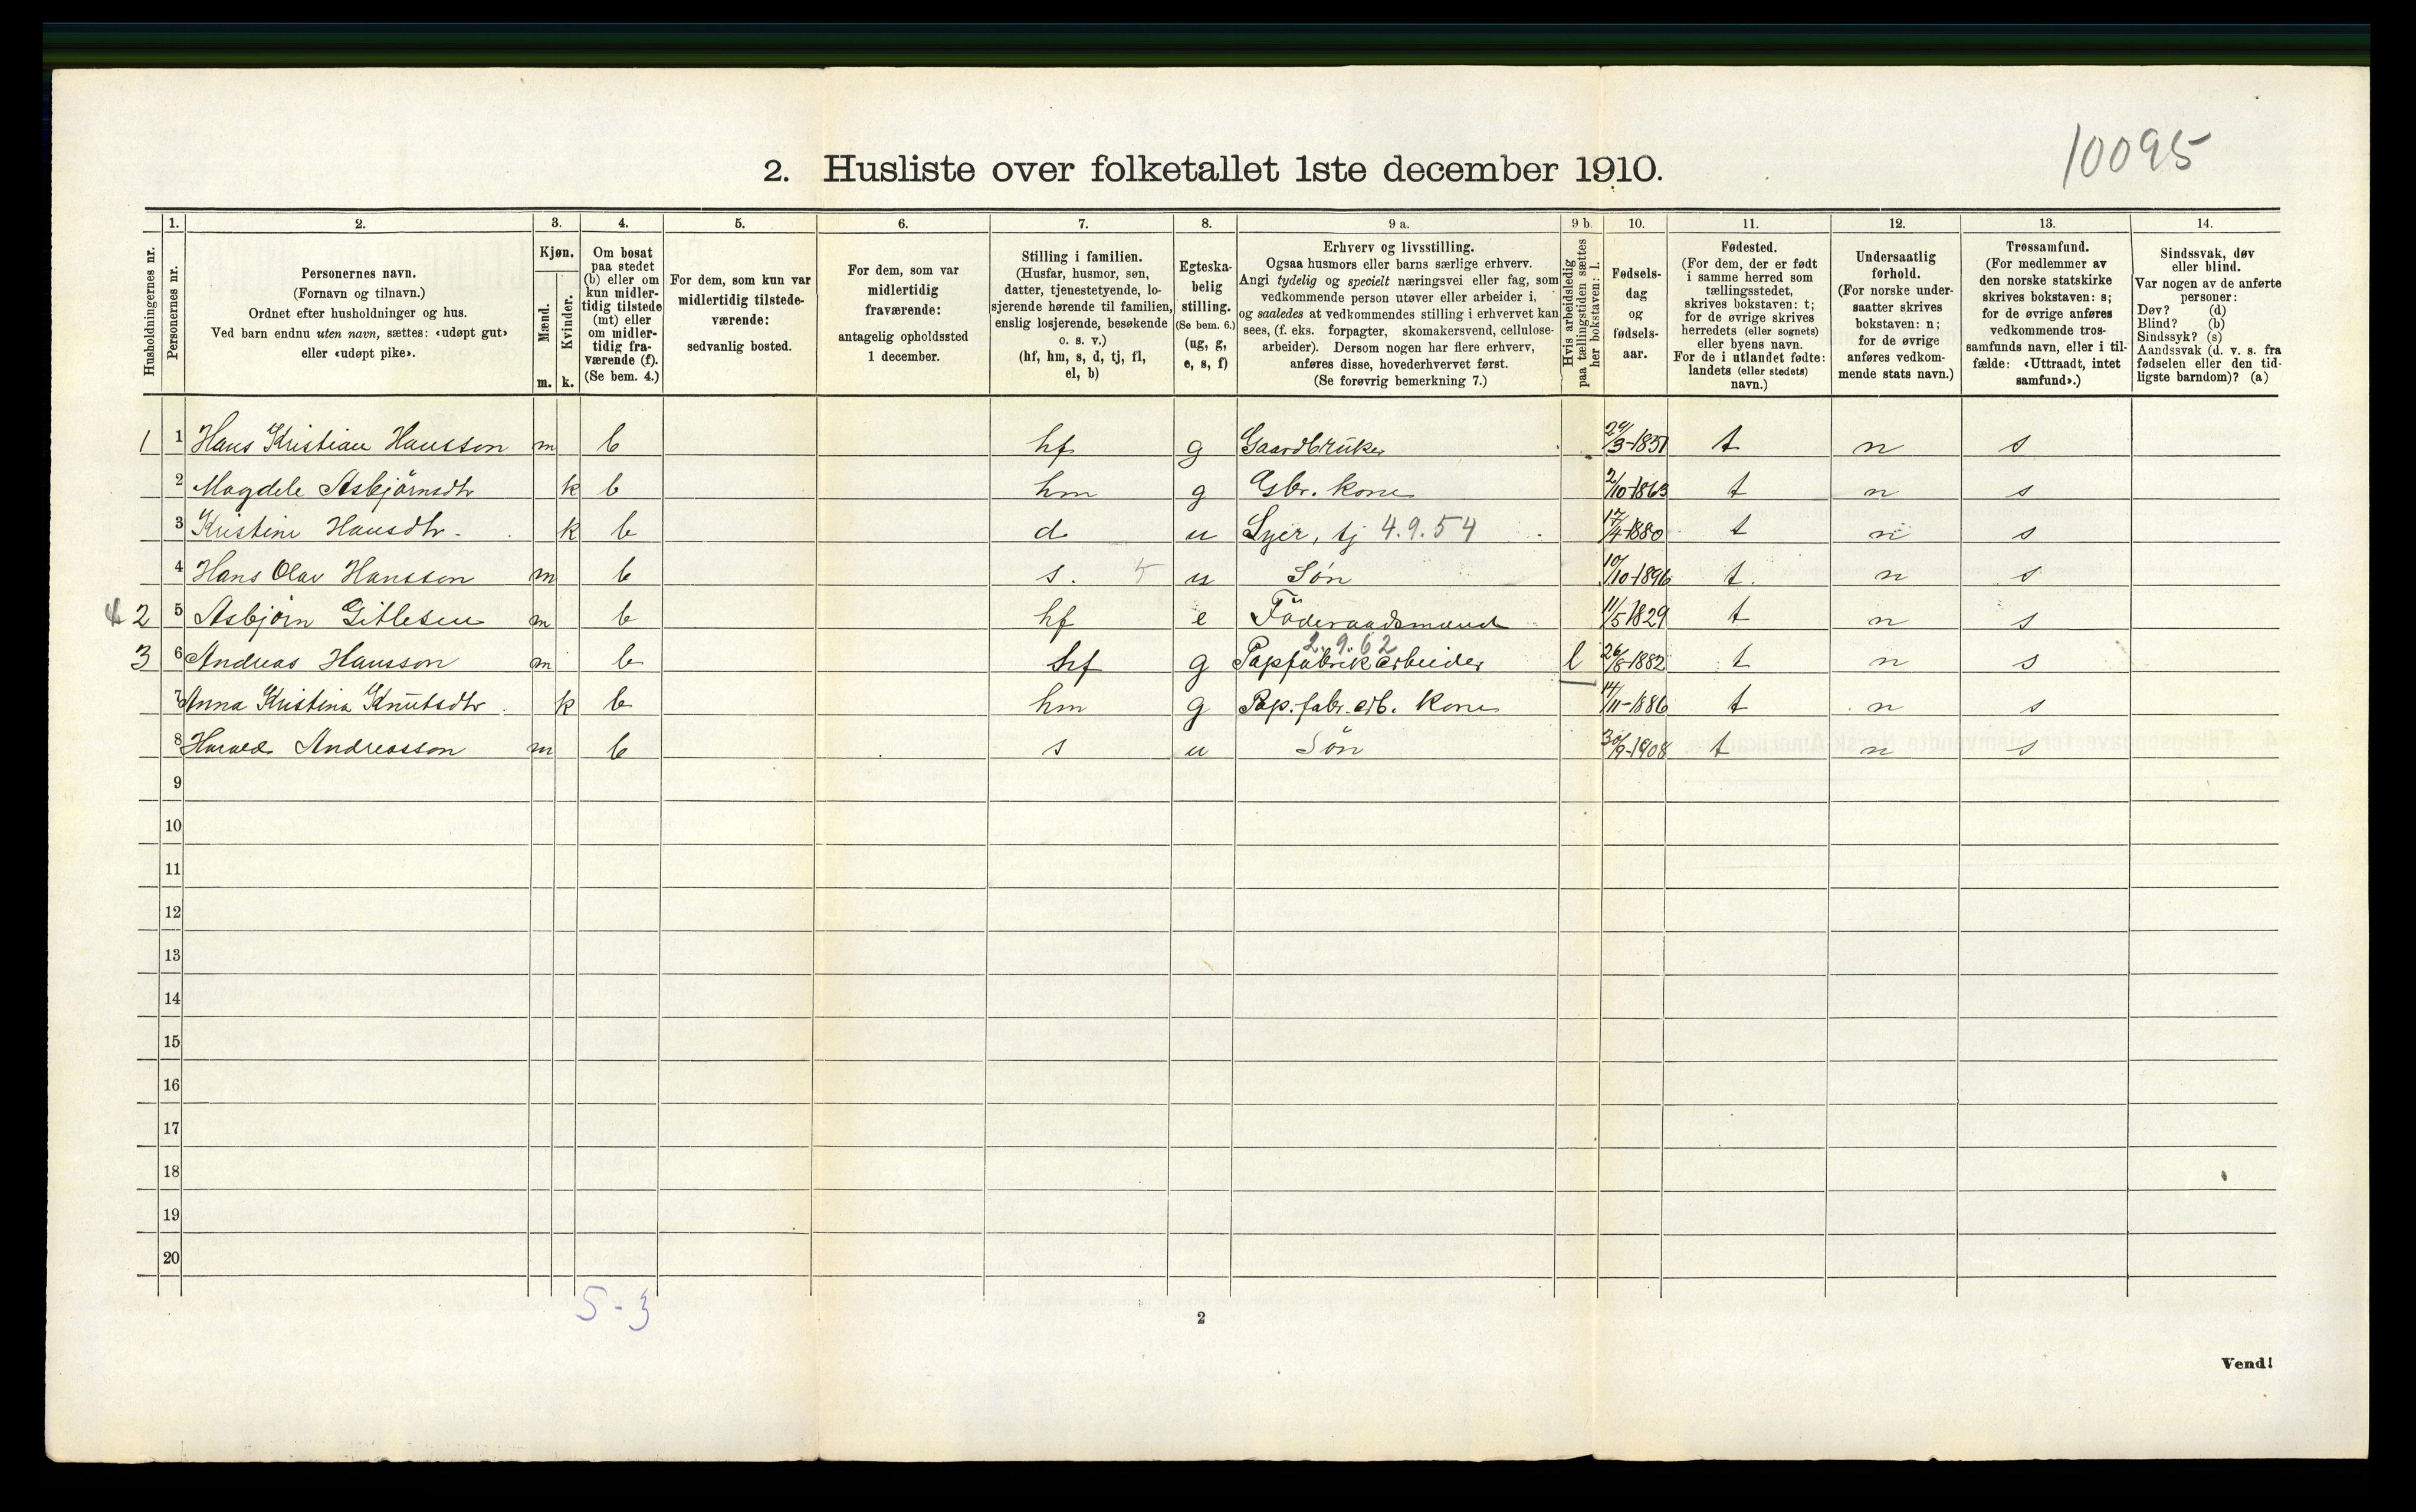 10095
2. Husliste over folketallet 1ste december 1910.
Husholdningernes nr.
1.
Personernes nr.
2.
Personernes navn.
(Fornavn og tilnavn.)
Ordnet efter husholdninger og hus.
Ved barn endnu uten navn, sættes: «udøpt gut»
eller «udøpt pike».
3.
Kjøn.
Mænd.
Kvinder.
m. k.
4.
Om bosat
paa stedet
(b) eller om
kun midler-
tidig tilstede
(mt) eller
om midler-
tidig fra-
værende (f).
(Se bem. 4.)
5.
For dem, som kun var
midlertidig tilstede-
værende:
sedvanlig bosted.
6.
For dem, som var
midlertidig
fraværende:
antagelig opholdssted
1 december.
7.
Stilling i familien.
(Husfar, husmor, søn,
datter, tjenestetyende, lo-
sjerende hørende til familien,
enslig losjerende, besøkende
o. s. v.)
(hf, hm, s, d, tj, fl,
el, b)
8.
Egteska-
belig
stilling.
(Se bem. 6.)
(ug, g,
e, s, f)
9 a.
Erhverv og livsstilling.
Ogsaa husmors eller barns særlige erhverv.
Angi tydelig og specielt næringsvei eller fag, som
vedkommende person utøver eller arbeider i,
og saaledes at vedkommendes stilling i erhvervet kan
sees, (f. eks. forpagter, skomakersvend, cellulose-
arbeider). Dersom nogen har flere erhverv,
anføres disse, hovederhvervet først.
(Se forøvrig bemerkning 7.)
9 b.
Hvis arbeidsledig
paa tællingstiden sættes
her bokstaven: l.
10.
Fødsels-
dag
og
fødsels-
aar.
11.
Fødested.
(For dem, der er født
i samme herred som
tællingsstedet,
skrives bokstaven: t;
for de øvrige skrives
herredets (eller sognets)
eller byens navn.
For de i utlandet fødte:
landets (eller stedets)
navn.)
12.
Undersaatlig
forhold.
(For norske under-
saatter skrives
bokstaven: n;
for de øvrige
anføres vedkom-
mende stats navn.)
13.
Trossamfund.
(For medlemmer av
den norske statskirke
skrives bokstaven: s;
for de øvrige anføres
vedkommende tros-
samfunds navn, eller i til-
fælde: «Uttraadt, intet
samfund».)
14.
Sindssvak, døv
eller blind.
Var nogen av de anførte
personer:
Døv? (d)
Blind? (b)
Sindssyk? (s)
Aandssvak (d. v. s. fra
fødselen eller den tid-
ligste barndom)? (a)
1 1 Hans Kristian Hansson m b hf g Gaardbruker 29/3-1851 t n s
2 Magdele Asbjörnsdtr k b hm g Gbr. kone 2/10-1863 t n s
3 Kristine Hansdtr. k b d u Syer, tj 4.9.54 17/4-1880 t n s
4 Hans Olav Hansson m b s. 5 u Søn 10/10-1896 t. n s
2 5 Asbjörn Gitlesen m b hf e Föderaadsmand 11/5 1829 t n s
2.9.62
3 6 Andreas Hansson m b hf g Papfabrikarbeider l 26/8-1882 t n s
7 Anna Kristina Knutsdtr. k b hm g Pap.fabr.arb. kone 14/11-1886 t n s
8 Harald Andreasson m b s u Søn 30/9-1908 t n s
9
10
11
12
13
14
15
16
17
18
19
20
5-3
2
Vend!